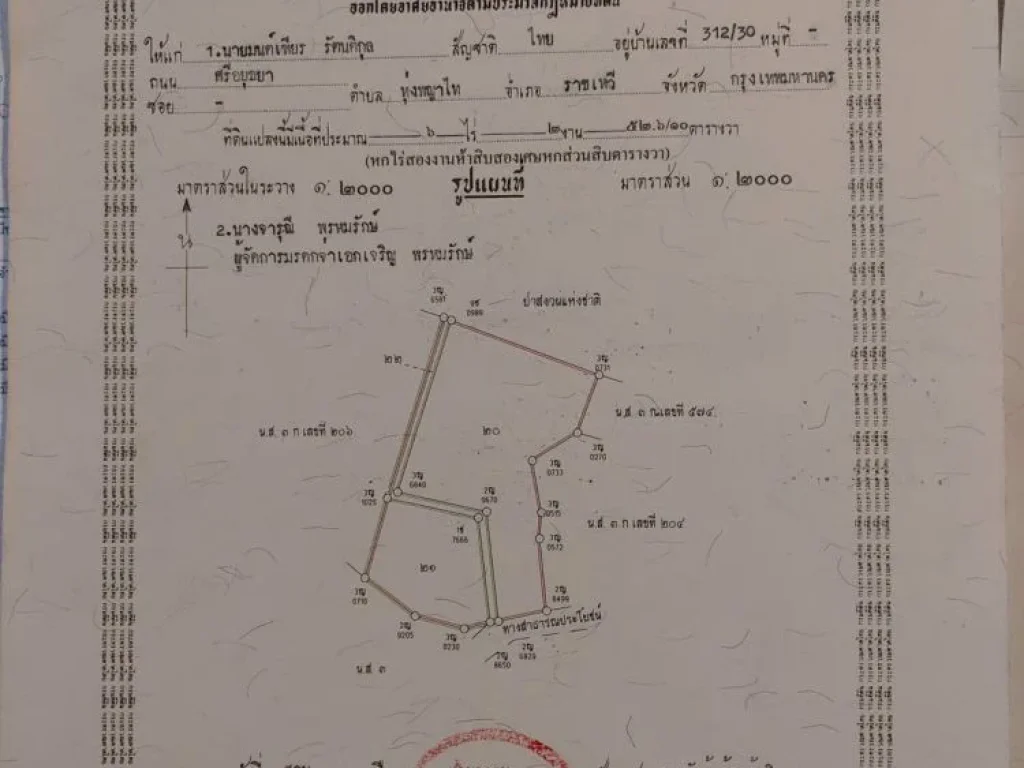 ออกโดยอาศัยอำนาจตามประมวลกฎหมายที่ดิน
ให้แก่ 1.นายมนต์เทียร รัตนทิกุล สัญชาติ ไทย อยู่บ้านเลขที่ 312/30 หมู่ที่ -
ถนน ศรีอยุธยา
ซอย - ตำบล ทุ่งพญาไท อำเภอ ราชเทวี จังหวัด กรุงเทพมหานคร
ที่ดินแปลงนี้มีเนื้อที่ประมาณ ๖ ไร่ ๒ งาน ๕๒.๖/๑๐ ตารางวา
(หกไร่สองงานห้าสิบสองเศษหกส่วนสิบตารางวา)
มาตราส่วนในระวาง ๑:๒๐๐๐ รูปแผนที่ มาตราส่วน ๑:๒๐๐๐
2.นางจารุณี พรหมรักษ์
น
ผู้จัดการมรดกจ่าเอกเจริญ พรหมรักษ์
ป่าสงวนแห่งชาติ
๒๒
0731
น.ส. ๓ ก เลขที่ ๕๗๔
น.ส. ๓ ก เลขที่ ๒๐๖
๒๐
0270
0733
0670
7666
0515
น.ส. ๓ ก เลขที่ ๒๐๔
0572
๒๑
0710
8499
0205
ทางสาธารณประโยชน์
0230
8650
0829
น.ส. ๓